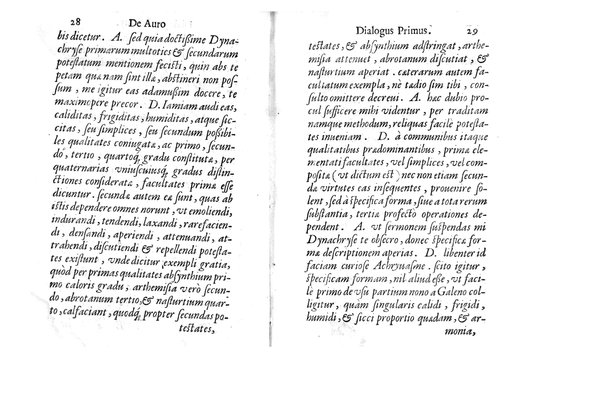 28 De Auro
bis dicetur. A. sed quia doctißime Dynachryse primarum multoties & secundarum
potestatum mentionem fecisti, quin abs te
petam quænam sint illæ, abstineri non possum, me igitur eas adamußim docere, te
maximopere precor. D. Iamiam audi eas,
caliditas, frigiditas, humiditas, atque siccitas, seu simplices, seu secundum poßibiles qualitates coniugatæ, ac primo, secundo, tertio, quartoq́; gradu constitutæ, per
quaternarias vniuscuiusq́; gradus distinctiones consideratæ, facultates primæ esse
dicuntur. secundæ autem eæ sunt, quas ab
istis dependere omnes norunt, vt emoliendi,
indurandi, tendendi, laxandi, rarefaciendi, densandi, aperiendi, attenuandi, attrahendi, discutiendi & repellendi potestates existunt, vnde dicitur exempli gratia,
quòd per primas qualitates absynthium primo caloris gradu, arthemisia verò secundo, abrotanum tertio, & nasturtium quarto, calfaciant, quodq́; propter secundas potestates,
Dialogus Primus. 29
testates, & absynthium adstringat, arthemisia attenuet, abrotanum discutiat, &
nasturtium aperiat. cæterarum autem facultatum exempla, ne tædio sim tibi, consulto omittere decreui. A. hæc dubio procul sufficere mihi videntur, per traditam
namque methodum, reliquas facile potestates inueniam. D. à communibus itaque
qualitatibus prædominantibus, prima elementati facultates, vel simplices, vel compositæ (vt dictum est) nec non etiam secundæ virtutes eas insequentes, prouenire solent, sed à specifica forma, siue a tota rerum
substantia, tertiæ profecto operationes dependent. A. vt sermonem suspendas mi
Dynachryse te obsecro, donec specificæ formæ descriptionem aperias. D. libenter id
faciam curiose Achryuasme. scito igitur,
specificam formam, nil aliud esse, vt facile primo de vsu partium nono a Galeno colligitur, quam singularis calidi, frigidi,
humidi, & sicci proportio quædam, & armonia,